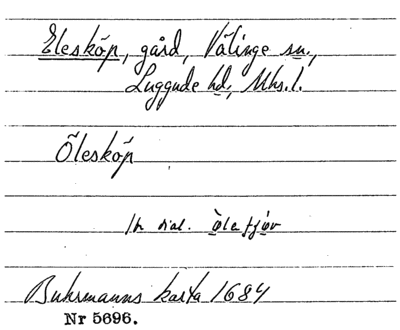 Elesköp, gård, Välinge sn.,
Luggude hd, Mhs. l.
Ölesköp
dial.
Buhrmanns karta 1684
Nr 5696.